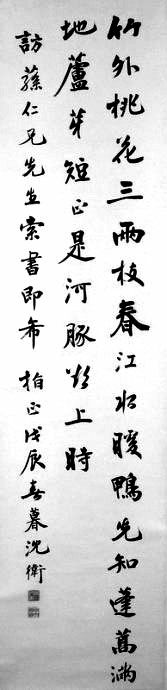 竹外桃花三兩枝春江水暖鴨先知蓬蒿滿
地蘆芽短正是河豚欲上時
訪蓀仁兄先生索書即希 柏正戊辰春暮沈衛